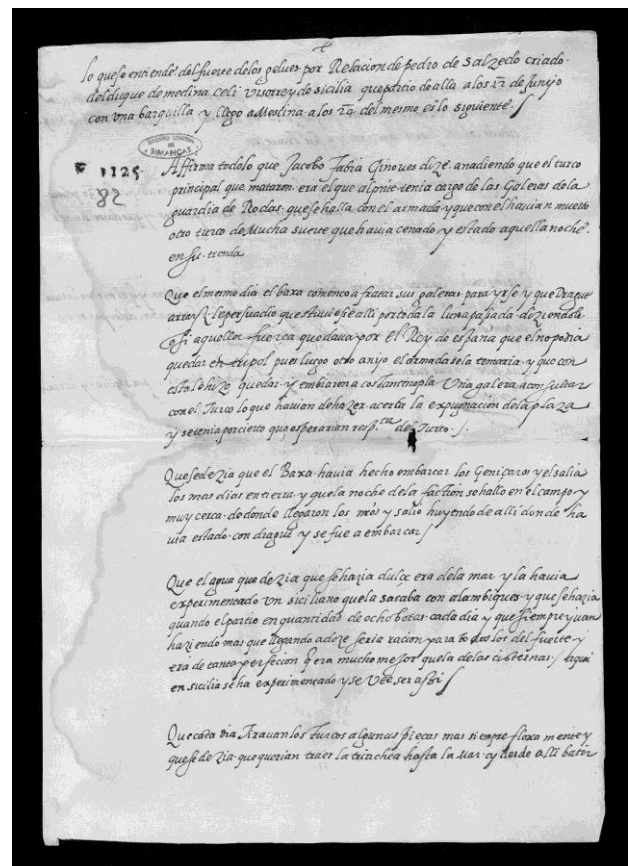 lo que se entiende del fuerte de los gelues por Relacion de pedro de Salzedo criado
del duque de medina celi visorrey de sicilia que partio de alla a los 17 de Junijo
con vna barquilla y llego a Mesina a los 29 del mesmo es lo siguiente /
ARCHIVO GENERAL
DE
SIMANCAS
1125
82
Affirma todo lo que Jacobo Fabia Ginoues dize anadiendo que el turco
principal que mataron era el que al pnte tenia cargo de las Galeras de la
guardia de Rodas que se halla con el armada y que con el hauian muerto
otro turco de mucha suerte que hauia cenado y estado aquella noche
en su tienda
Que el mesmo dia el baxa comenco a fratar sus galeras para yrse y que Drague
arrayz le persuadio que stuuiese alli por toda la luna pasada deziendole
si aquella fuerza quedaua por El Rey de espana que el no podia
quedar en tripol pues luego otro anijo el armada se la tomaria y que con
esto le hizo quedar y embiaron a costantinopla vna galera a consultar
con el Turco lo que hauian de hazer acerca la expugnacion de la plaza
y se tenia por cierto que esperarian resp.ta del Turco /.
Que se dezia que el Baxa hauia hecho embarcar los Geniçaros y el salia
los mas dias en tierra y que la noche de la faction se hallo en el campo y
muy cerca de donde llegaron los nros y salio huyendo de alli donde ha
uia estado con dragut y se fue a embarcar /
Que el agua que dezia que se hazia dulce era de la mar y la hauia
experimentado vn siciliano que la sacaba con alambiques y que se hazia
quando el partio en quantidad de ocho botas cada dia y que siempre yuan
haziendo mas que llegando a doze seria racion para todos los del fuerte y
era de tanta perfecion q era mucho mejor que la de las cisternas / aqui
en sicilia se ha experimentado y se vee ser assi /
Que cada dia tirauan los Turcos algunas pieças mas siempre floxamente y
que se dezia que querian traer la trinchea hasta la mar y desde alli batir